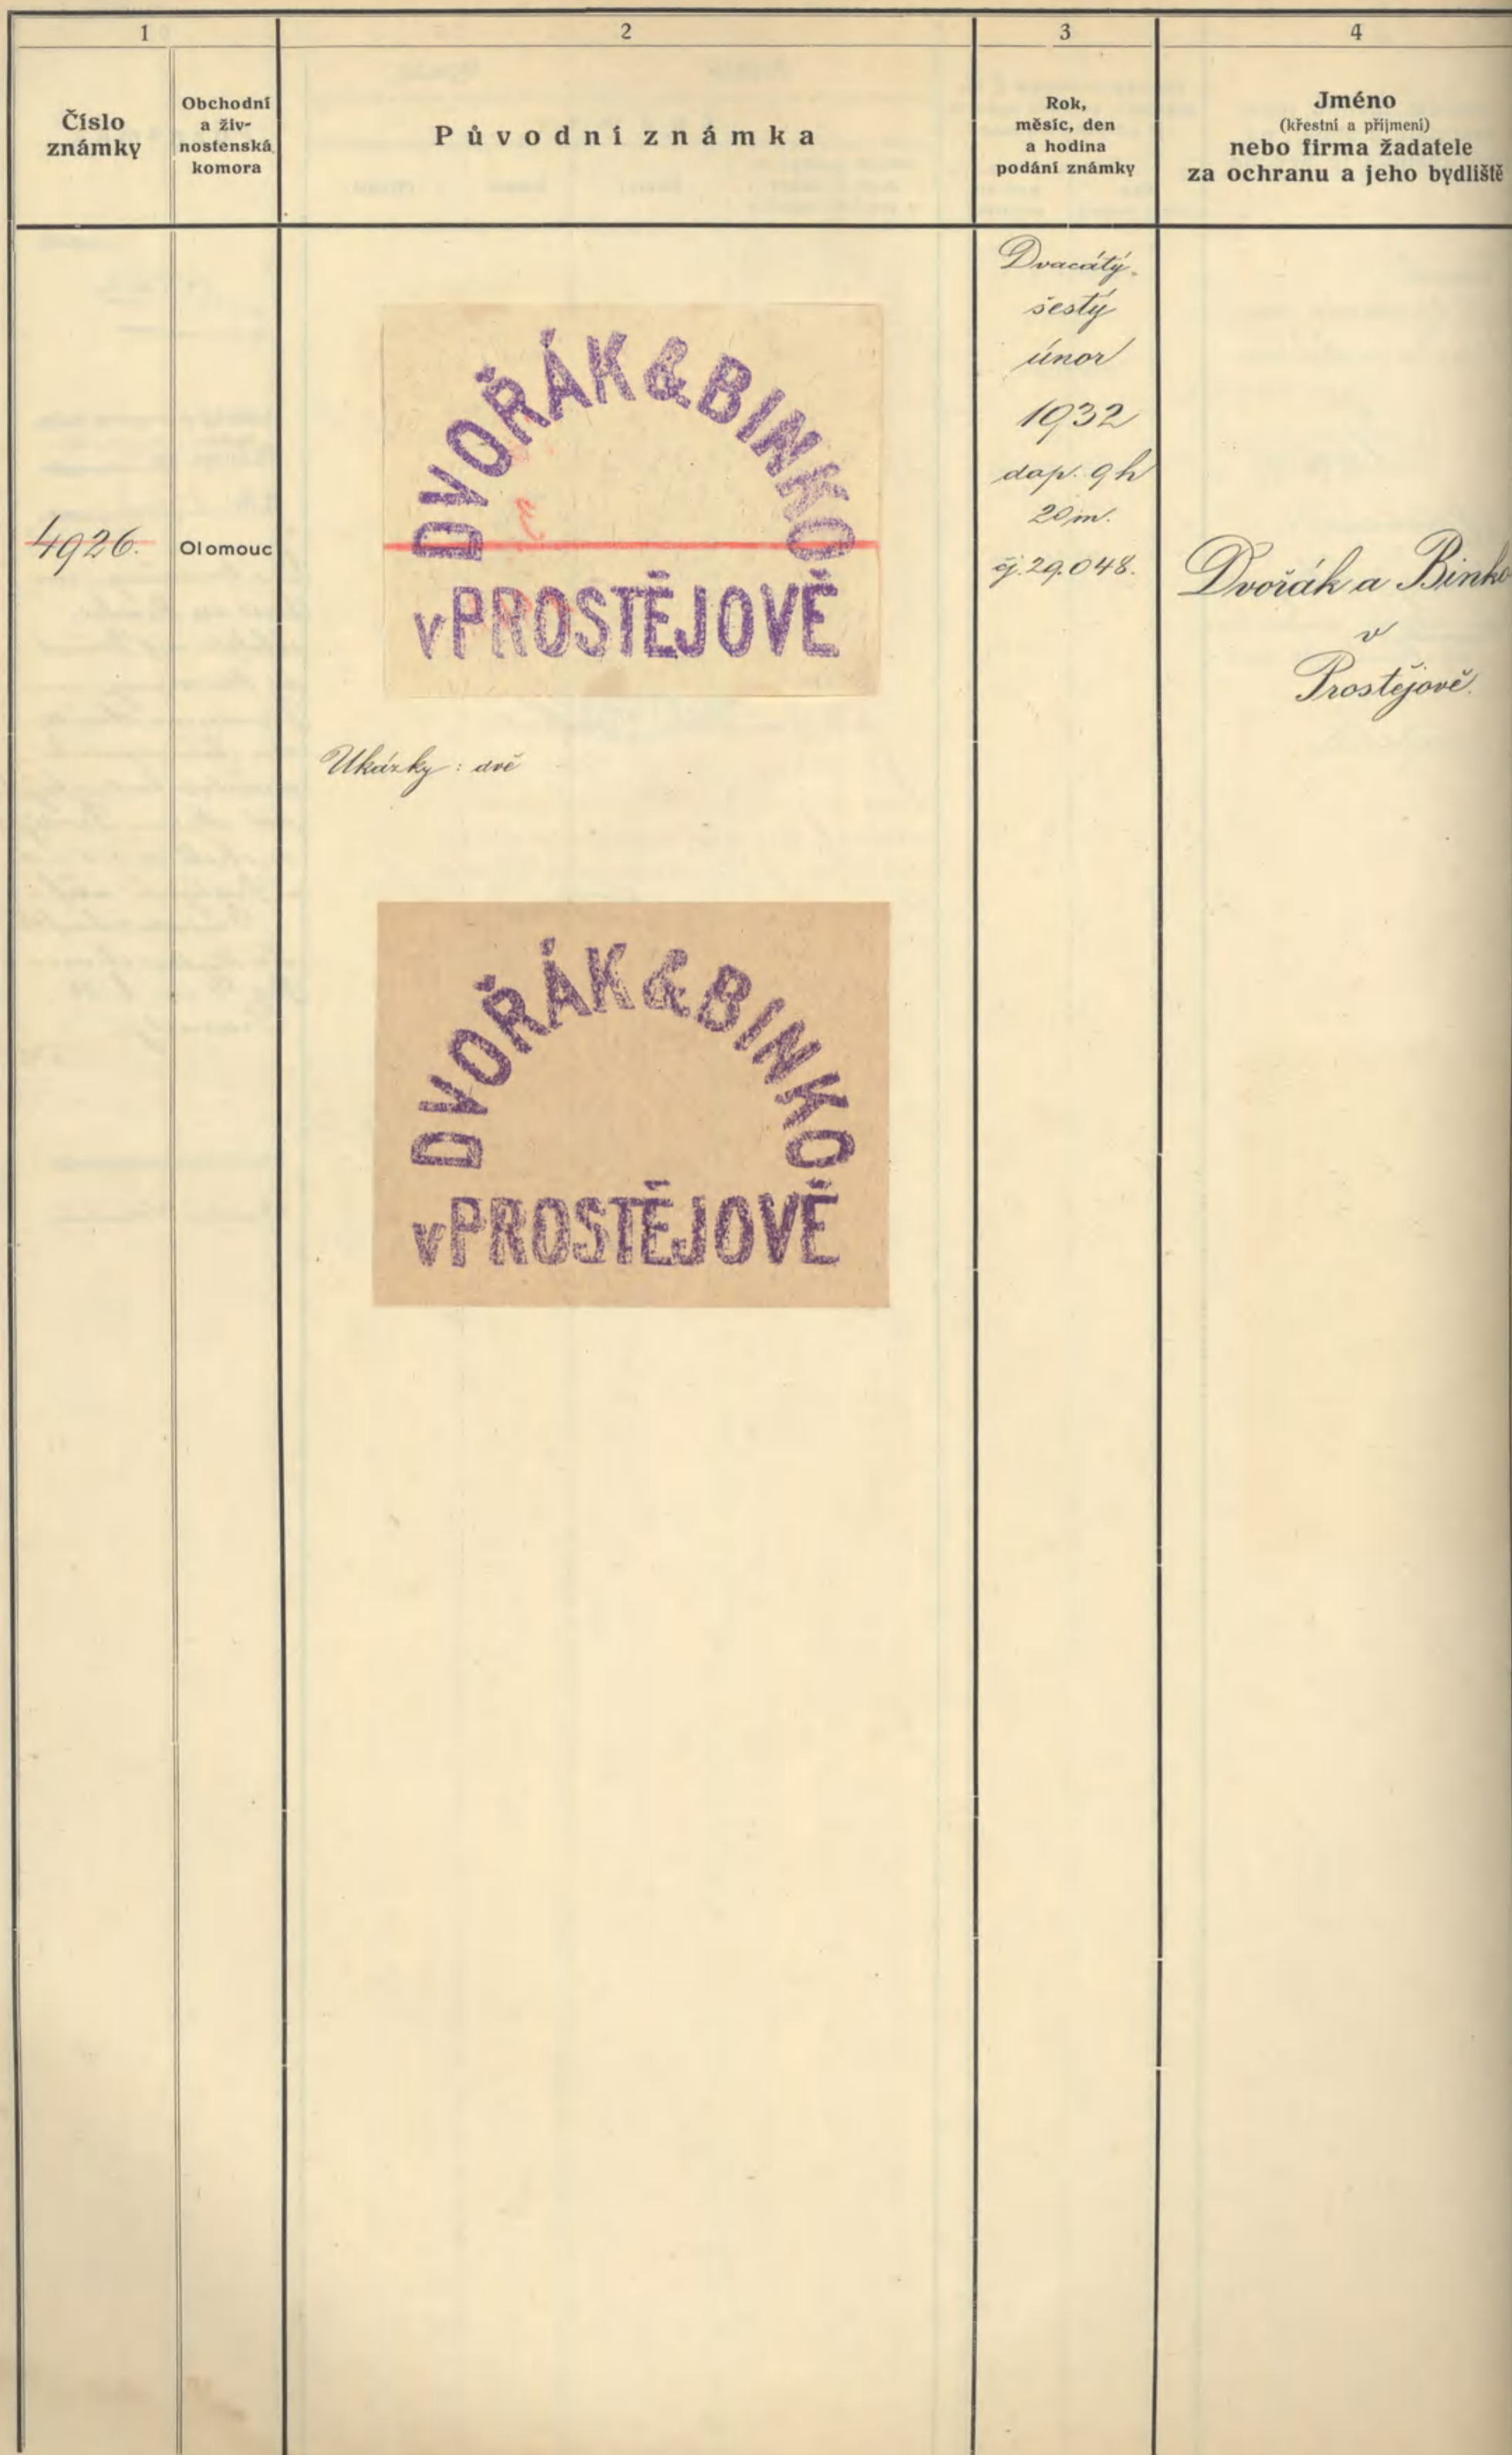 1
2
3
4
Číslo
známky
Obchodní
a živ-
nostenská
komora
Původní známka
Rok,
měsíc, den
a hodina
podání známky
Jméno
(křestní a příjmení)
nebo firma žadatele
za ochranu a jeho bydliště
4926.
Olomouc
DVOŘÁK & BINKO
v PROSTĚJOVĚ
Ukázky: dvě
DVOŘÁK & BINKO
v PROSTĚJOVĚ
Dvacátý-
šestý
únor
1932
dop. 9 h
20 m.
čj. 29.048.
Dvořák a Binko
v
Prostějově.